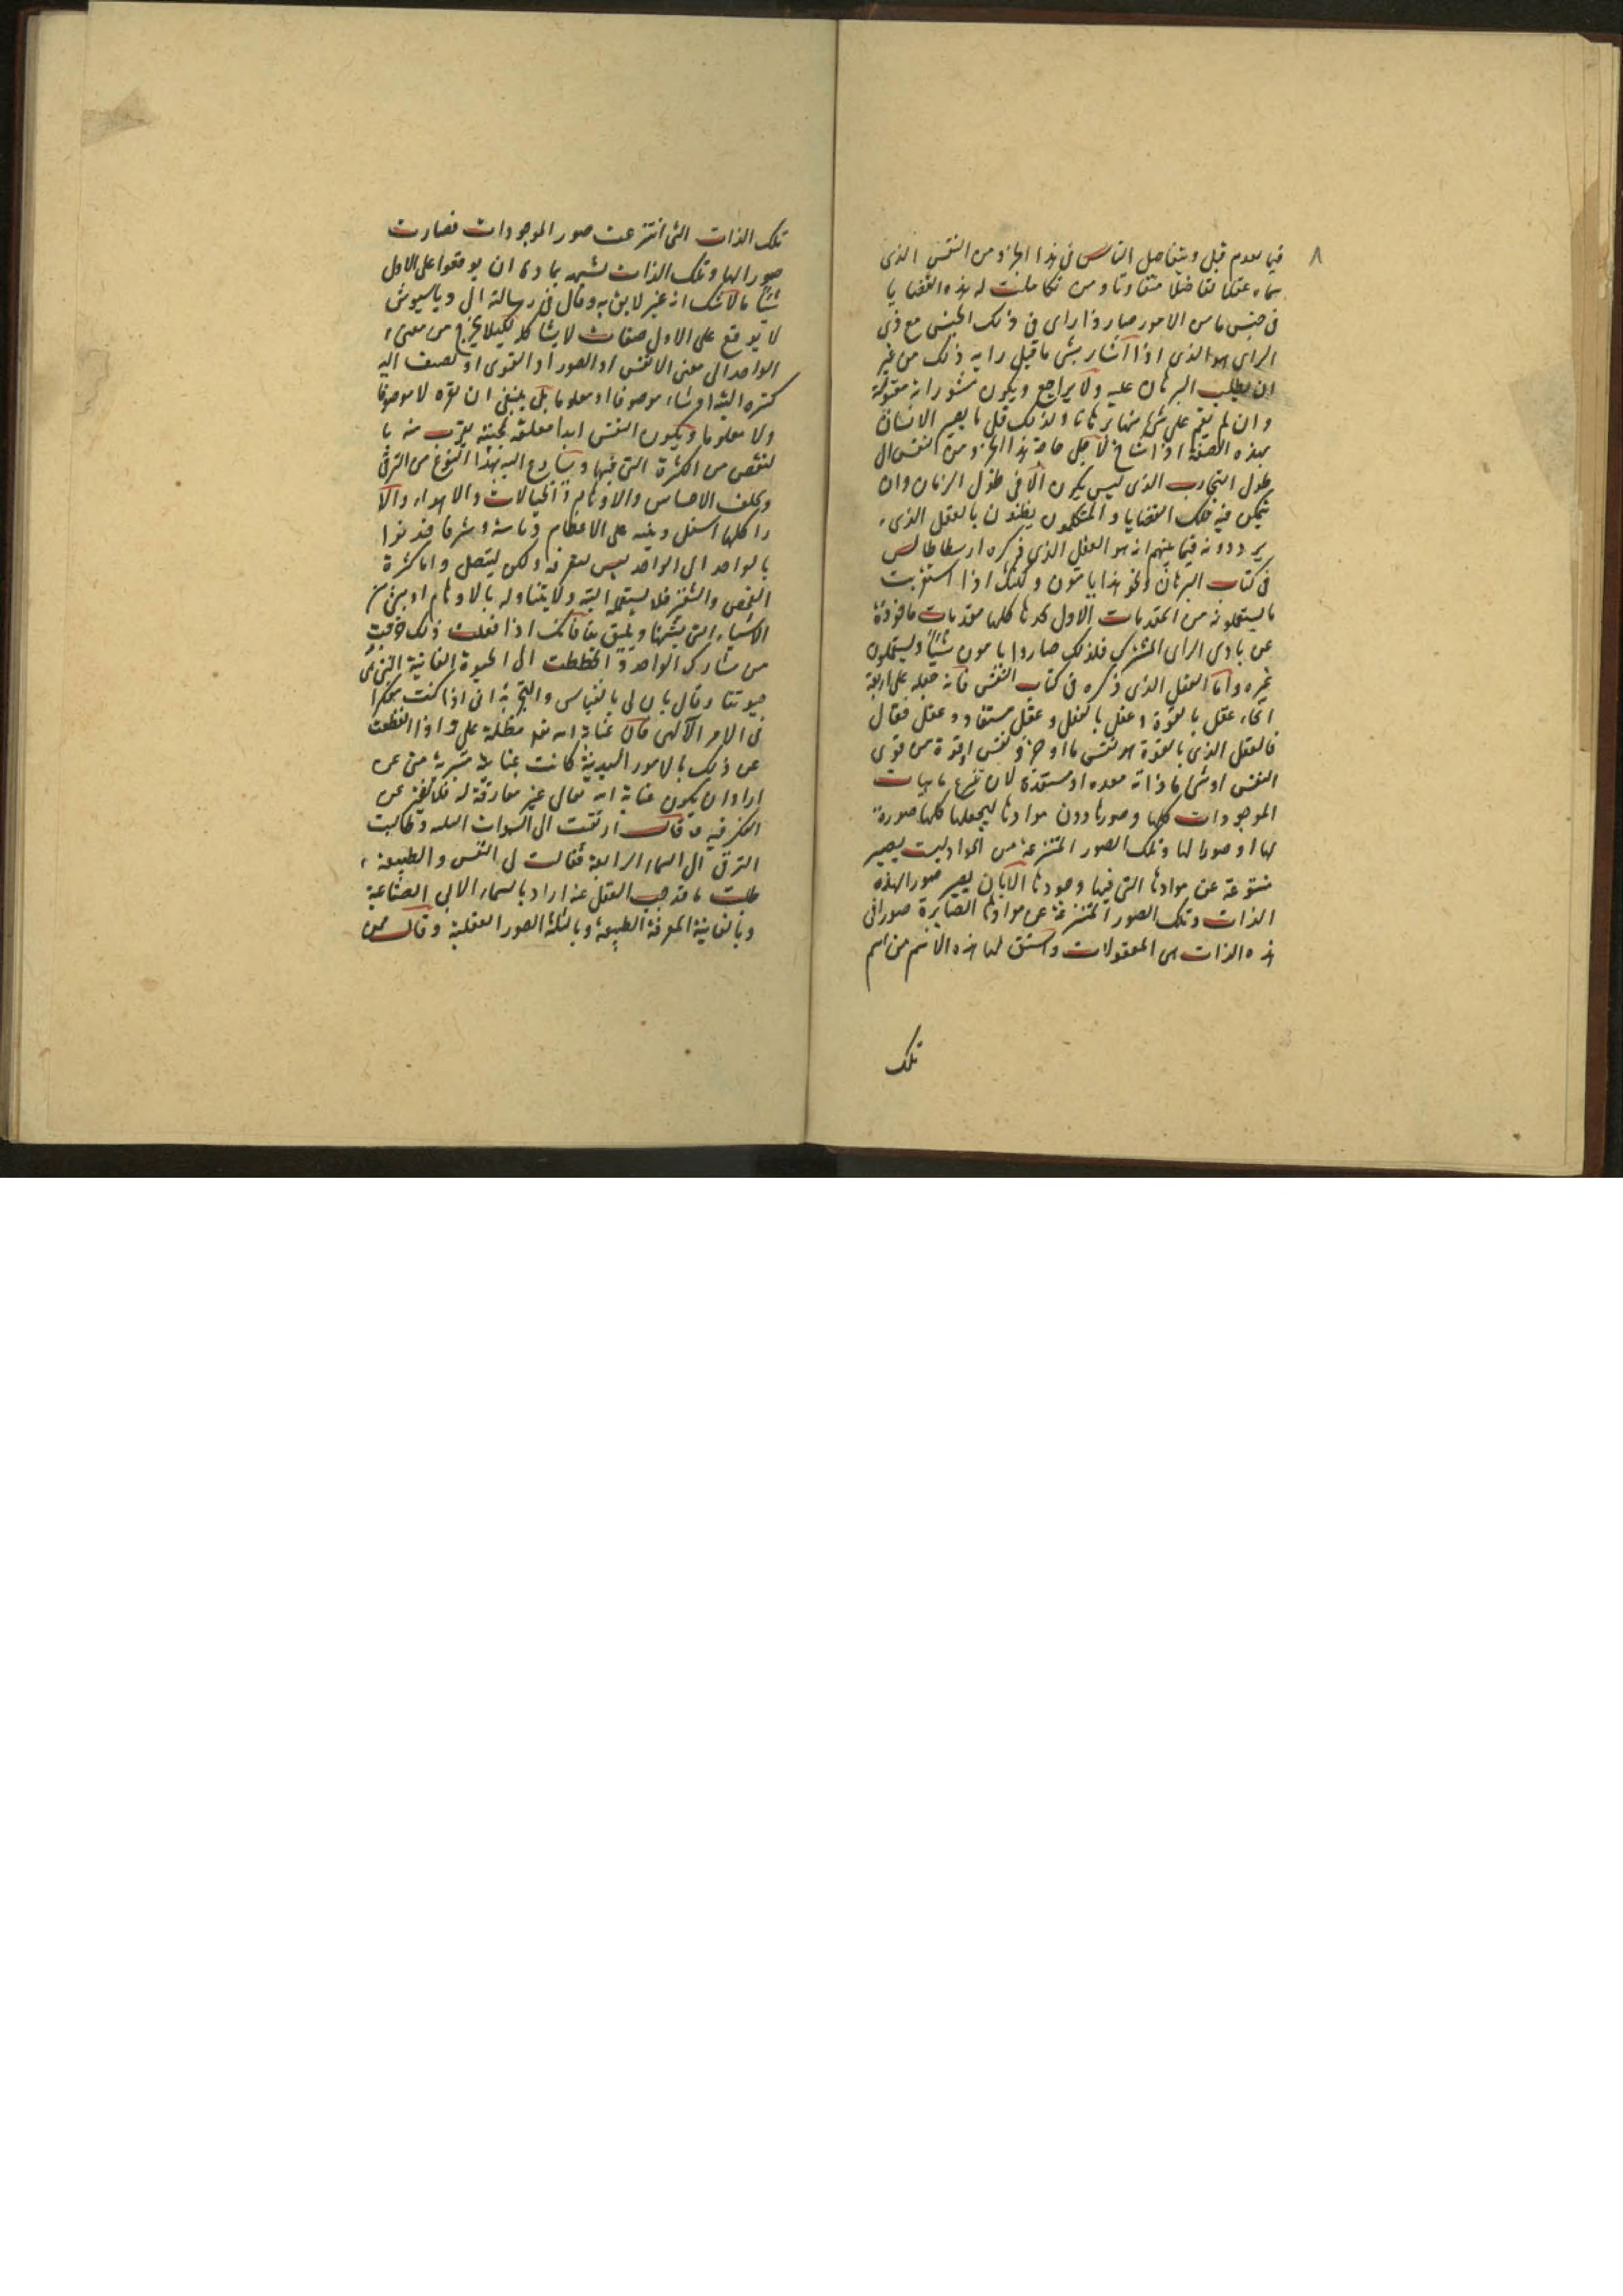 ٨
فيما تقدم قبل ويتفاضل الناس فى هذا الجزء من النفس الذى
سماه عقلا تفاضلا متفاوتا ومن تكاملت له هذه القضايا
فى جنس ما من الامور صار ذا راى فى ذلك الجنس مع ذى
الراى هو الذى اذا اشار بشى ما قبل رايه ذلك من غير
ان يطلب البرهان عليه ولا يراجع ويكون مشوراته مقبولة
وان لم يقم على شى منها برهانا ولذلك قل ما يصير الانسان
بهذه الصفة الا اذا شاخ لاجل حاجة هذا الجزو من النفس الى
طول التجارب الذى ليس يكون الا فى طول الزمان وان
يتمكن فيه تلك القضايا والمتكلمون يظنون بالعقل الذى
يرددونه فيما بينهم انه هو العقل الذى ذكره ارسطاطاليس
فى كتاب البرهان ونحو هذا يامون ولكنك اذا استقريت
ما يستعملونه من المقدمات الاول تجدها كلها مقدمات ماخوذة
عن بادى الراى المشترك فلذلك صاروا يامون شيئا ويستعملون
غيره واما العقل الذى ذكره فى كتاب النفس فانه جعله على اربعة
انحاء عقل بالقوة وعقل بالفعل وعقل مستفاد وعقل فعال
فالعقل الذى بالقوة هو نفس ما او جزو نفس او قوة من قوى
النفس او شى ما ذاته معده او مستعدة لان تنتزع ماهيات
الموجودات كلها وصورها دون موادها ليجعلها كلها صورة
لها او صورا لها وتلك الصور المنتزعة من المواد ليست يصير
منتزعة عن موادها التى فيها وجودها الا بان يصير صورا لهذه
الذات وتلك الصور المنتزعة عن موادها الصايرة صورا فى
هذه الذات هى المعقولات واشتق لها هذه الاسم من اسم
تلك
تلك الذات التى انتزعت صور الموجودات فصارت
صورا لها وتلك الذات تشبه بمادة ان يوقعوا على الاول
شيئا ما لا شك انه غير لايق به وقال فى رسالة الى
لا توقع على الاول صفات لا يشاكله لكيلا يخرج من معنى
الواحد الى معنى الانفس او الصور او القوى او تصف اليه
كثره البته او شاء موصوفا او معلوما بل ينبغى ان نقره لا موصوفا
ولا معلوما ويكون النفس ابدا معلقة بمحبته بقرب منه بما
لنقص من الكثرة التى فيها ويسارع اليه بهذا النوع من الترقى
وتخلف الاحساس والاوهام والخيالات والاهواء والآ
را كلها اسفل
بالواحد الى الواحد ليس لتعرفه ولكن ليتصل واما كثرة
الفحص فلا يستعمله البته ولا يتناوله بالاوهام او بشى من
الاشياء التى يشبهها ويليق بها فانك اذا فعلت ذلك خرجت
من مشاركة الواحد وانحططت الى الحيوة الفانية التى هى
حيوتنا وقال بان لى بالقياس والتجربة انى اذا كنت مفكرا
فى الامر الآلهى فان عناية الله مظلة على واذا انقطعت
عن ذلك بالامور البدنية كانت عناية متبرية منى عن
اراد ان يكون عناية الله تعالى غير مفارقة له فلا يفتر عن
الفكر فيه وقال ارتقت الى السموات العلى وطالبت
الترقى الى السماء الرابعة فقالت لى النفس والطبيعة
ما قد حجب العقل عنه اراد بالسماء الاولى الصناعية
وبالثانية المعرفة الطبيعة وبالثالثة الصور العقلية وقال